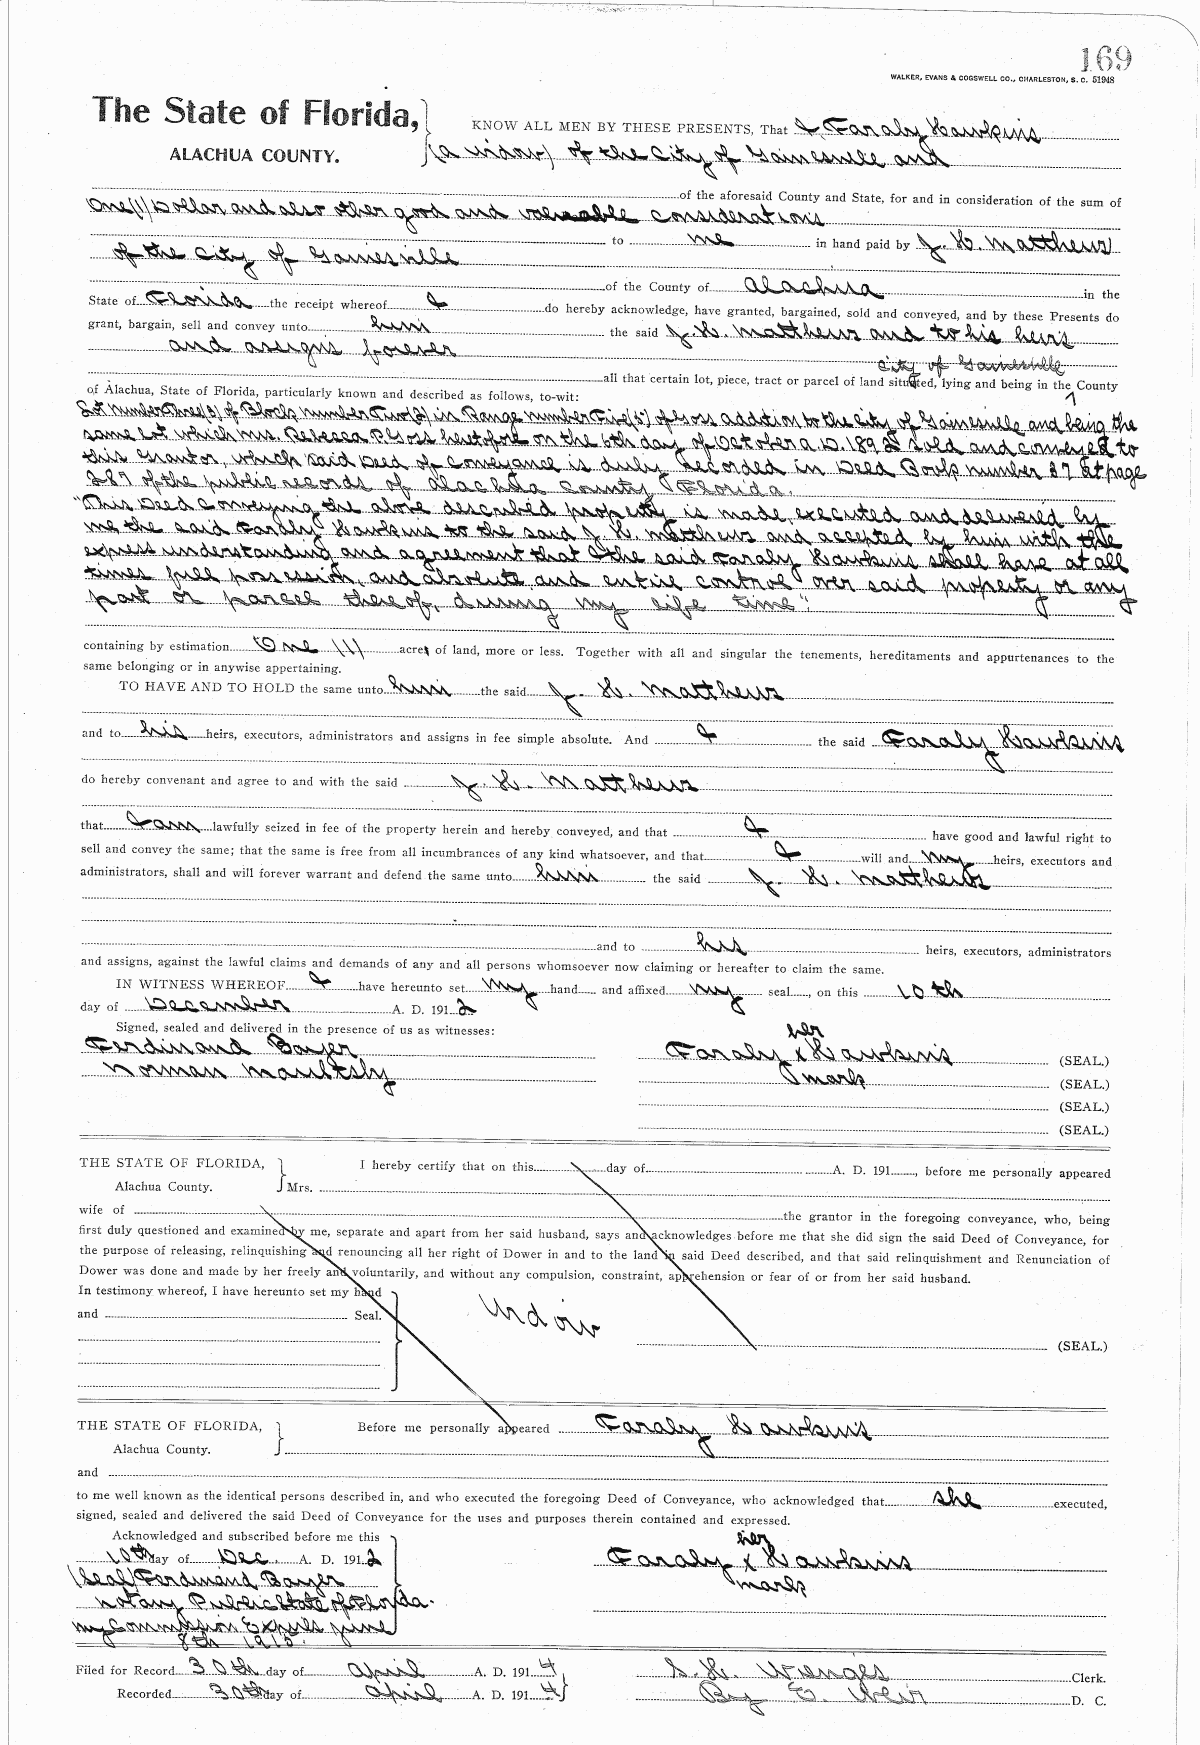 169
WALKER, EVANS & COGSWELL CO., CHARLESTON, S. C. 51948
The State of Florida,
ALACHUA COUNTY.
KNOW ALL MEN BY THESE PRESENTS, That I Faraly Hawkins
(a widow) of the City of Gainesville and
of the aforesaid County and State, for and in consideration of the sum of
One (1) Dollar and also other good and valuable considerations
to me in hand paid by J. H. Matthews
of the City of Gainesville
of the County of Alachua in the
State of Florida the receipt whereof I do hereby acknowledge, have granted, bargained, sold and conveyed, and by these Presents do
grant, bargain, sell and convey unto him the said J. H. Matthews and to his heirs
and assigns forever
City of Gainesville
all that certain lot, piece, tract or parcel of land situated, lying and being in the County
of Alachua, State of Florida, particularly known and described as follows, to-wit:
Lot number Three (3) of Block number Two (2) in Range number Five (5) of Goss addition to the City of Gainesville and being the
same Lot which Mrs. Rebecca P. Goss heretofore on the 6th day of October A. D. 1892 sold and conveyed to
this Grantor, which said Deed of Conveyance is duly recorded in Deed Book number 37 at page
287 of the public records of Alachua County Florida.
"This Deed Conveying the above described property is made, executed and delivered by
me the said Faraly Hawkins to the said J. H. Matthews and accepted by him with the
express understanding and agreement that I the said Faraly Hawkins shall have at all
times full possession, and absolute and entire control over said property or any
part or parcel thereof, during my life time".
containing by estimation One (1) acre of land, more or less. Together with all and singular the tenements, hereditaments and appurtenances to the
same belonging or in anywise appertaining.
TO HAVE AND TO HOLD the same unto him the said J. H. Matthews
and to his heirs, executors, administrators and assigns in fee simple absolute. And I the said Faraly Hawkins
do hereby convenant and agree to and with the said J. H. Matthews
that I am lawfully seized in fee of the property herein and hereby conveyed, and that I have good and lawful right to
sell and convey the same; that the same is free from all incumbrances of any kind whatsoever, and that I will and my heirs, executors and
administrators, shall and will forever warrant and defend the same unto him the said J. H. Matthews
and to his heirs, executors, administrators
and assigns, against the lawful claims and demands of any and all persons whomsoever now claiming or hereafter to claim the same.
IN WITNESS WHEREOF I have hereunto set my hand and affixed my seal, on this 10th
day of December A. D. 1912
Signed, sealed and delivered in the presence of us as witnesses:
her
Ferdinand Bayer Faraly x Hawkins (SEAL.)
Norman Maultsby mark (SEAL.)
(SEAL.)
(SEAL.)
THE STATE OF FLORIDA, I hereby certify that on this day of A. D. 191 , before me personally appeared
Alachua County. Mrs.
wife of the grantor in the foregoing conveyance, who, being
first duly questioned and examined by me, separate and apart from her said husband, says and acknowledges before me that she did sign the said Deed of Conveyance, for
the purpose of releasing, relinquishing and renouncing all her right of Dower in and to the land in said Deed described, and that said relinquishment and Renunciation of
Dower was done and made by her freely and voluntarily, and without any compulsion, constraint, apprehension or fear of or from her said husband.
In testimony whereof, I have hereunto set my hand
and Seal.
Widow
(SEAL.)
THE STATE OF FLORIDA, Before me personally appeared Faraly Hawkins
Alachua County.
and
to me well known as the identical persons described in, and who executed the foregoing Deed of Conveyance, who acknowledged that she executed,
signed, sealed and delivered the said Deed of Conveyance for the uses and purposes therein contained and expressed.
Acknowledged and subscribed before me this
her
10th day of Dec. A. D. 1912 Faraly x Hawkins
mark
(Seal) Ferdinand Bayer
Notary Public State of Florida.
My Commission Expires June
8th 1915.
Filed for Record 30th day of April A. D. 1914 S. H. Wienges Clerk.
Recorded 30th day of April A. D. 1914 By E. Weir D. C.